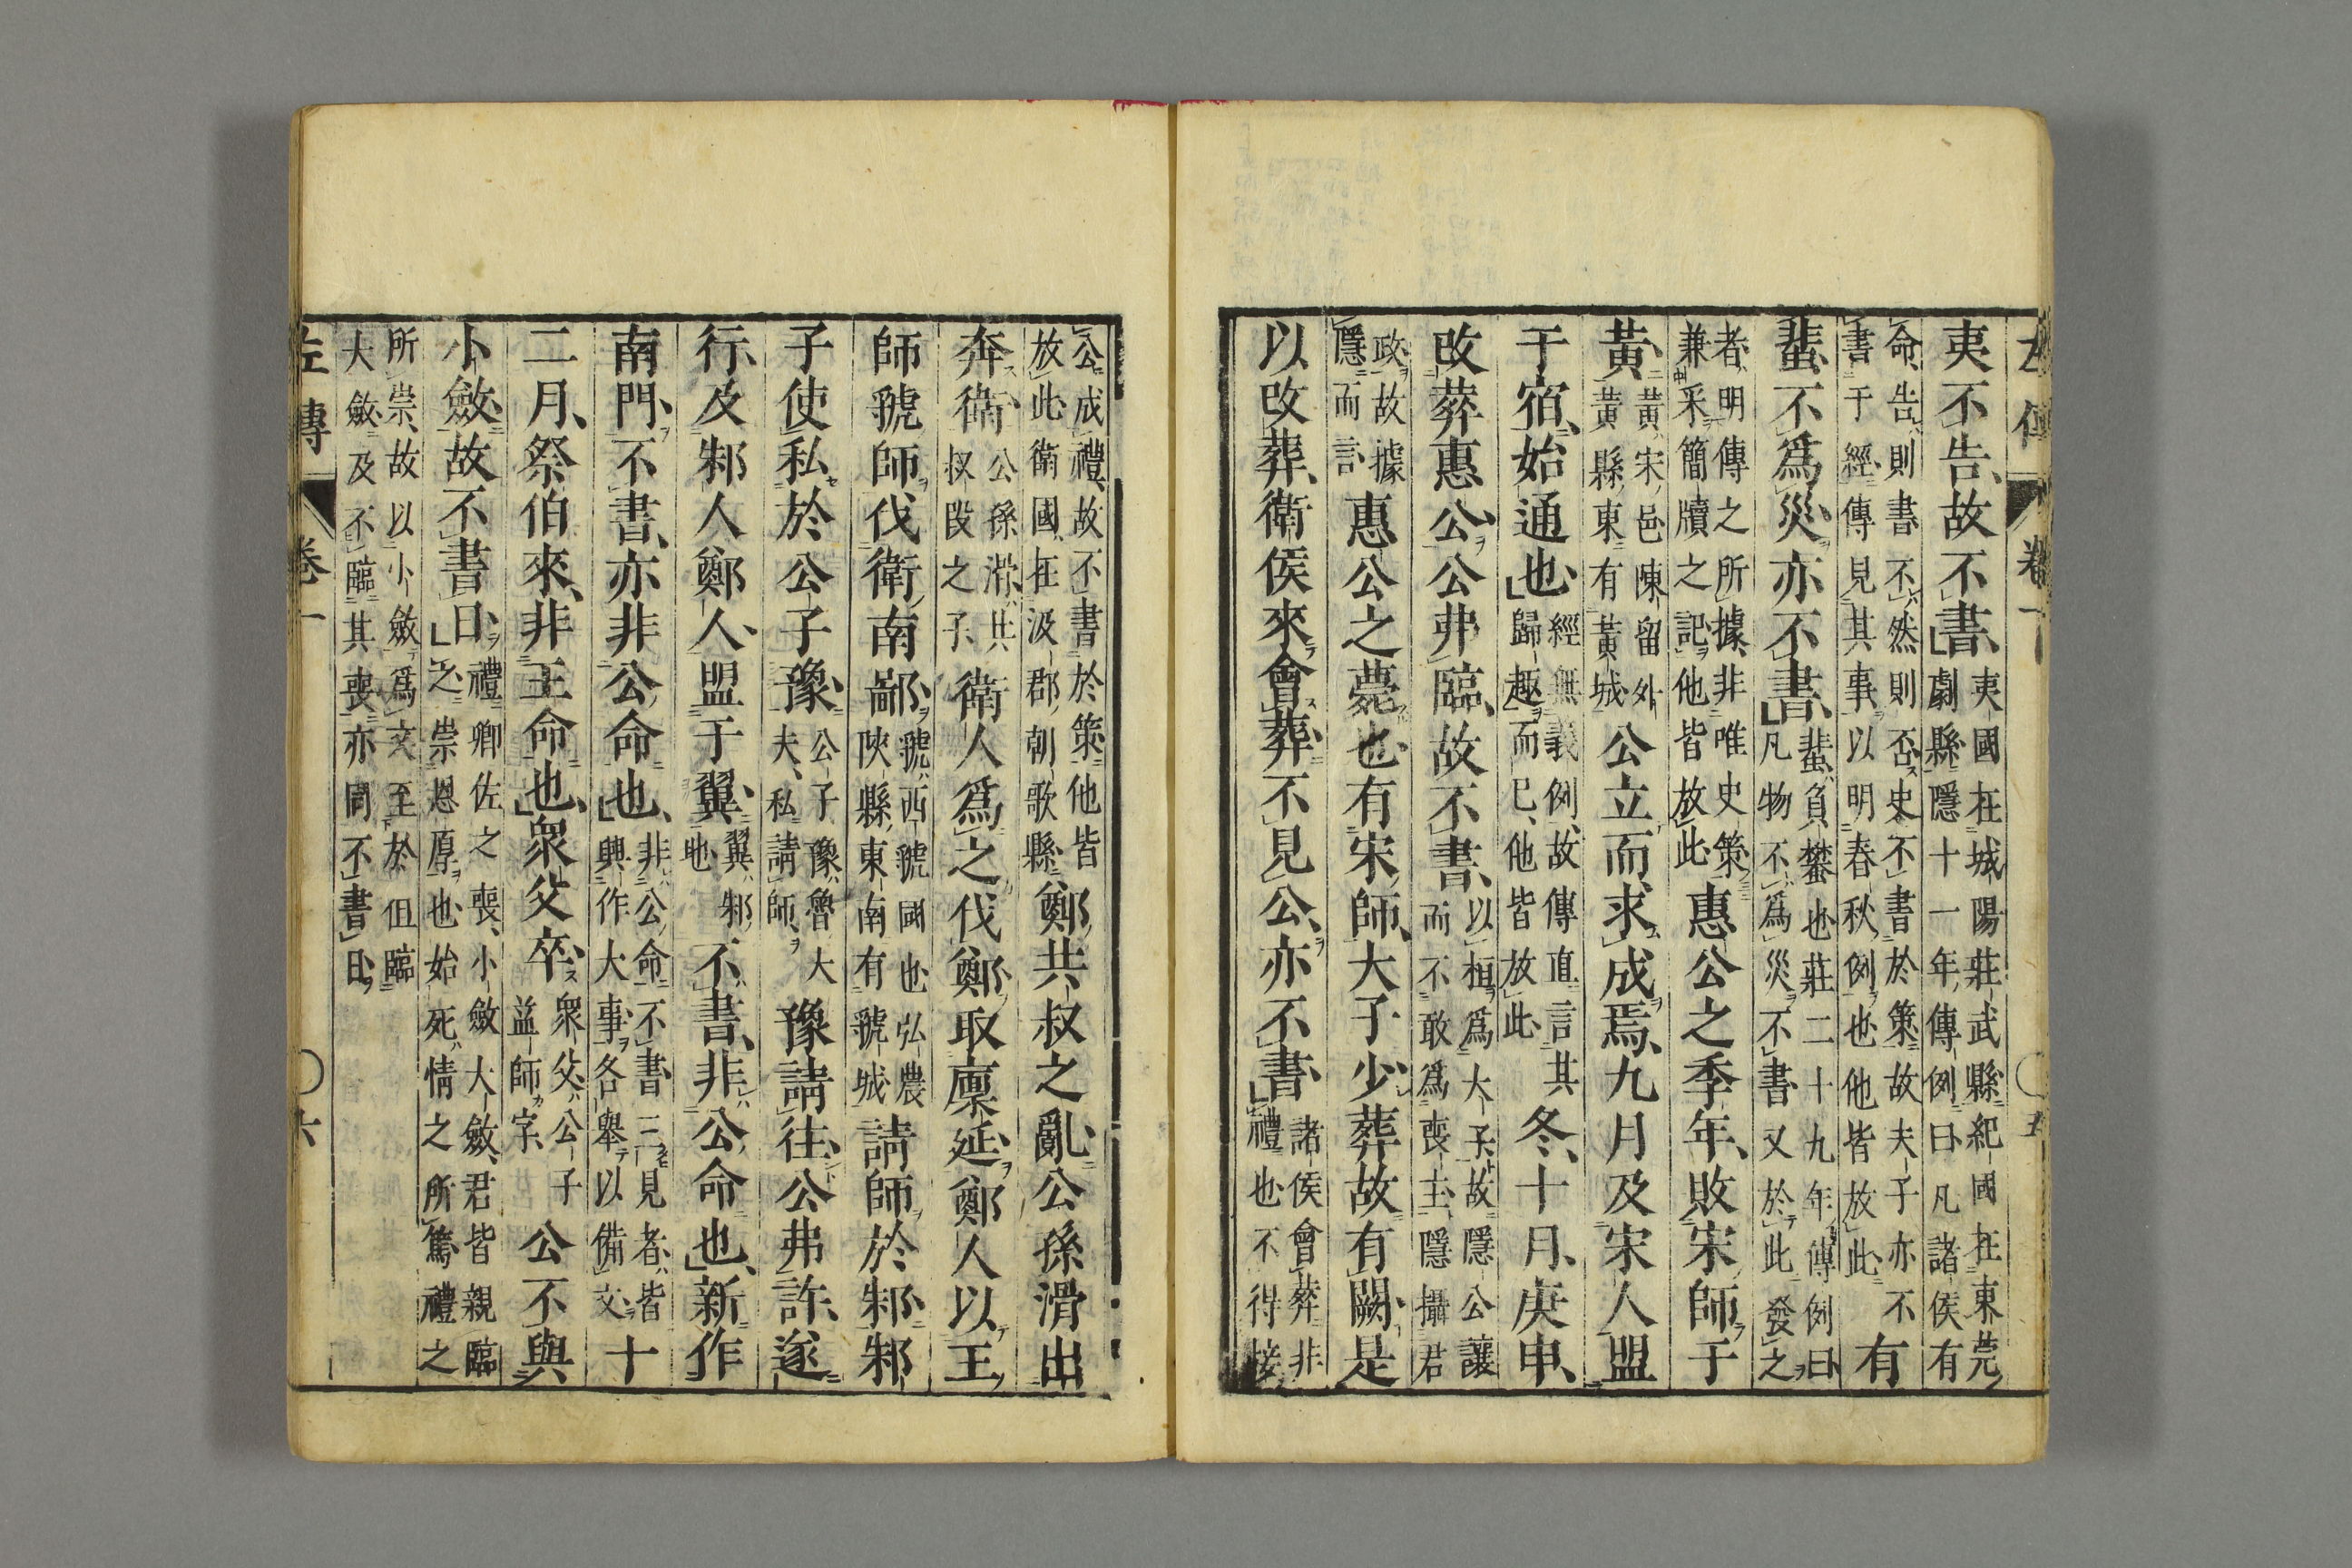 左傳 卷一 五
夷不告、故不書、夷國在城陽莊武縣紀國在東莞
劇縣隱十一年傳例曰凡諸侯有
命告則書不然則否史不書於策故夫子亦不
書于經傳見其事以明春秋例也他皆放此有
蜚、不爲災亦不書、蜚負蠜也莊二十九年傳例曰
凡物不爲災不書又於此發之
者明傳之所據非唯史策
兼采簡牘之記他皆放此惠公之季年、敗宋師于
黃、黃宋邑陳留外
黃縣東有黃城公立而求成焉、九月及宋人盟
于宿、始通也經無義例故傳直言其
歸趣而已、他皆放此冬、十月、庚申、
改葬惠公公弗臨、故不書、以桓爲大子故隱公讓
而不敢爲喪主隱攝君
政故據
隱而言惠公之薨也有宋師、大子少葬故有闕是
以改葬、衛侯來會葬不見公、亦不書諸侯會葬非
禮也不得接
公成禮故不書於策他皆
放此衛國在汲郡朝歌縣鄭共叔之亂公孫滑出
奔衛公孫滑共
叔段之子衛人爲之伐鄭取廩延鄭人以王
師虢師伐衛南鄙虢西虢國也弘農
陝縣東南有虢城請師於邾邾
子使私於公子豫公子豫魯大
夫、私請師、豫請往公弗許、遂
行、及邾人鄭人、盟于翼翼邾
地不書、非公命也、新作
南門、不書、亦非公命也、非公命不書三見者皆
興作大事各舉以備文十
二月、祭伯來、非王命也、眾父卒眾父公子
益師字、公不與
小斂故不書日、禮卿佐之喪、小斂大斂君皆親臨
之崇恩厚也始死情之所篤禮之
所崇故以小斂爲文至於但臨
大斂及不臨其喪亦同不書日
左傳 卷一 六